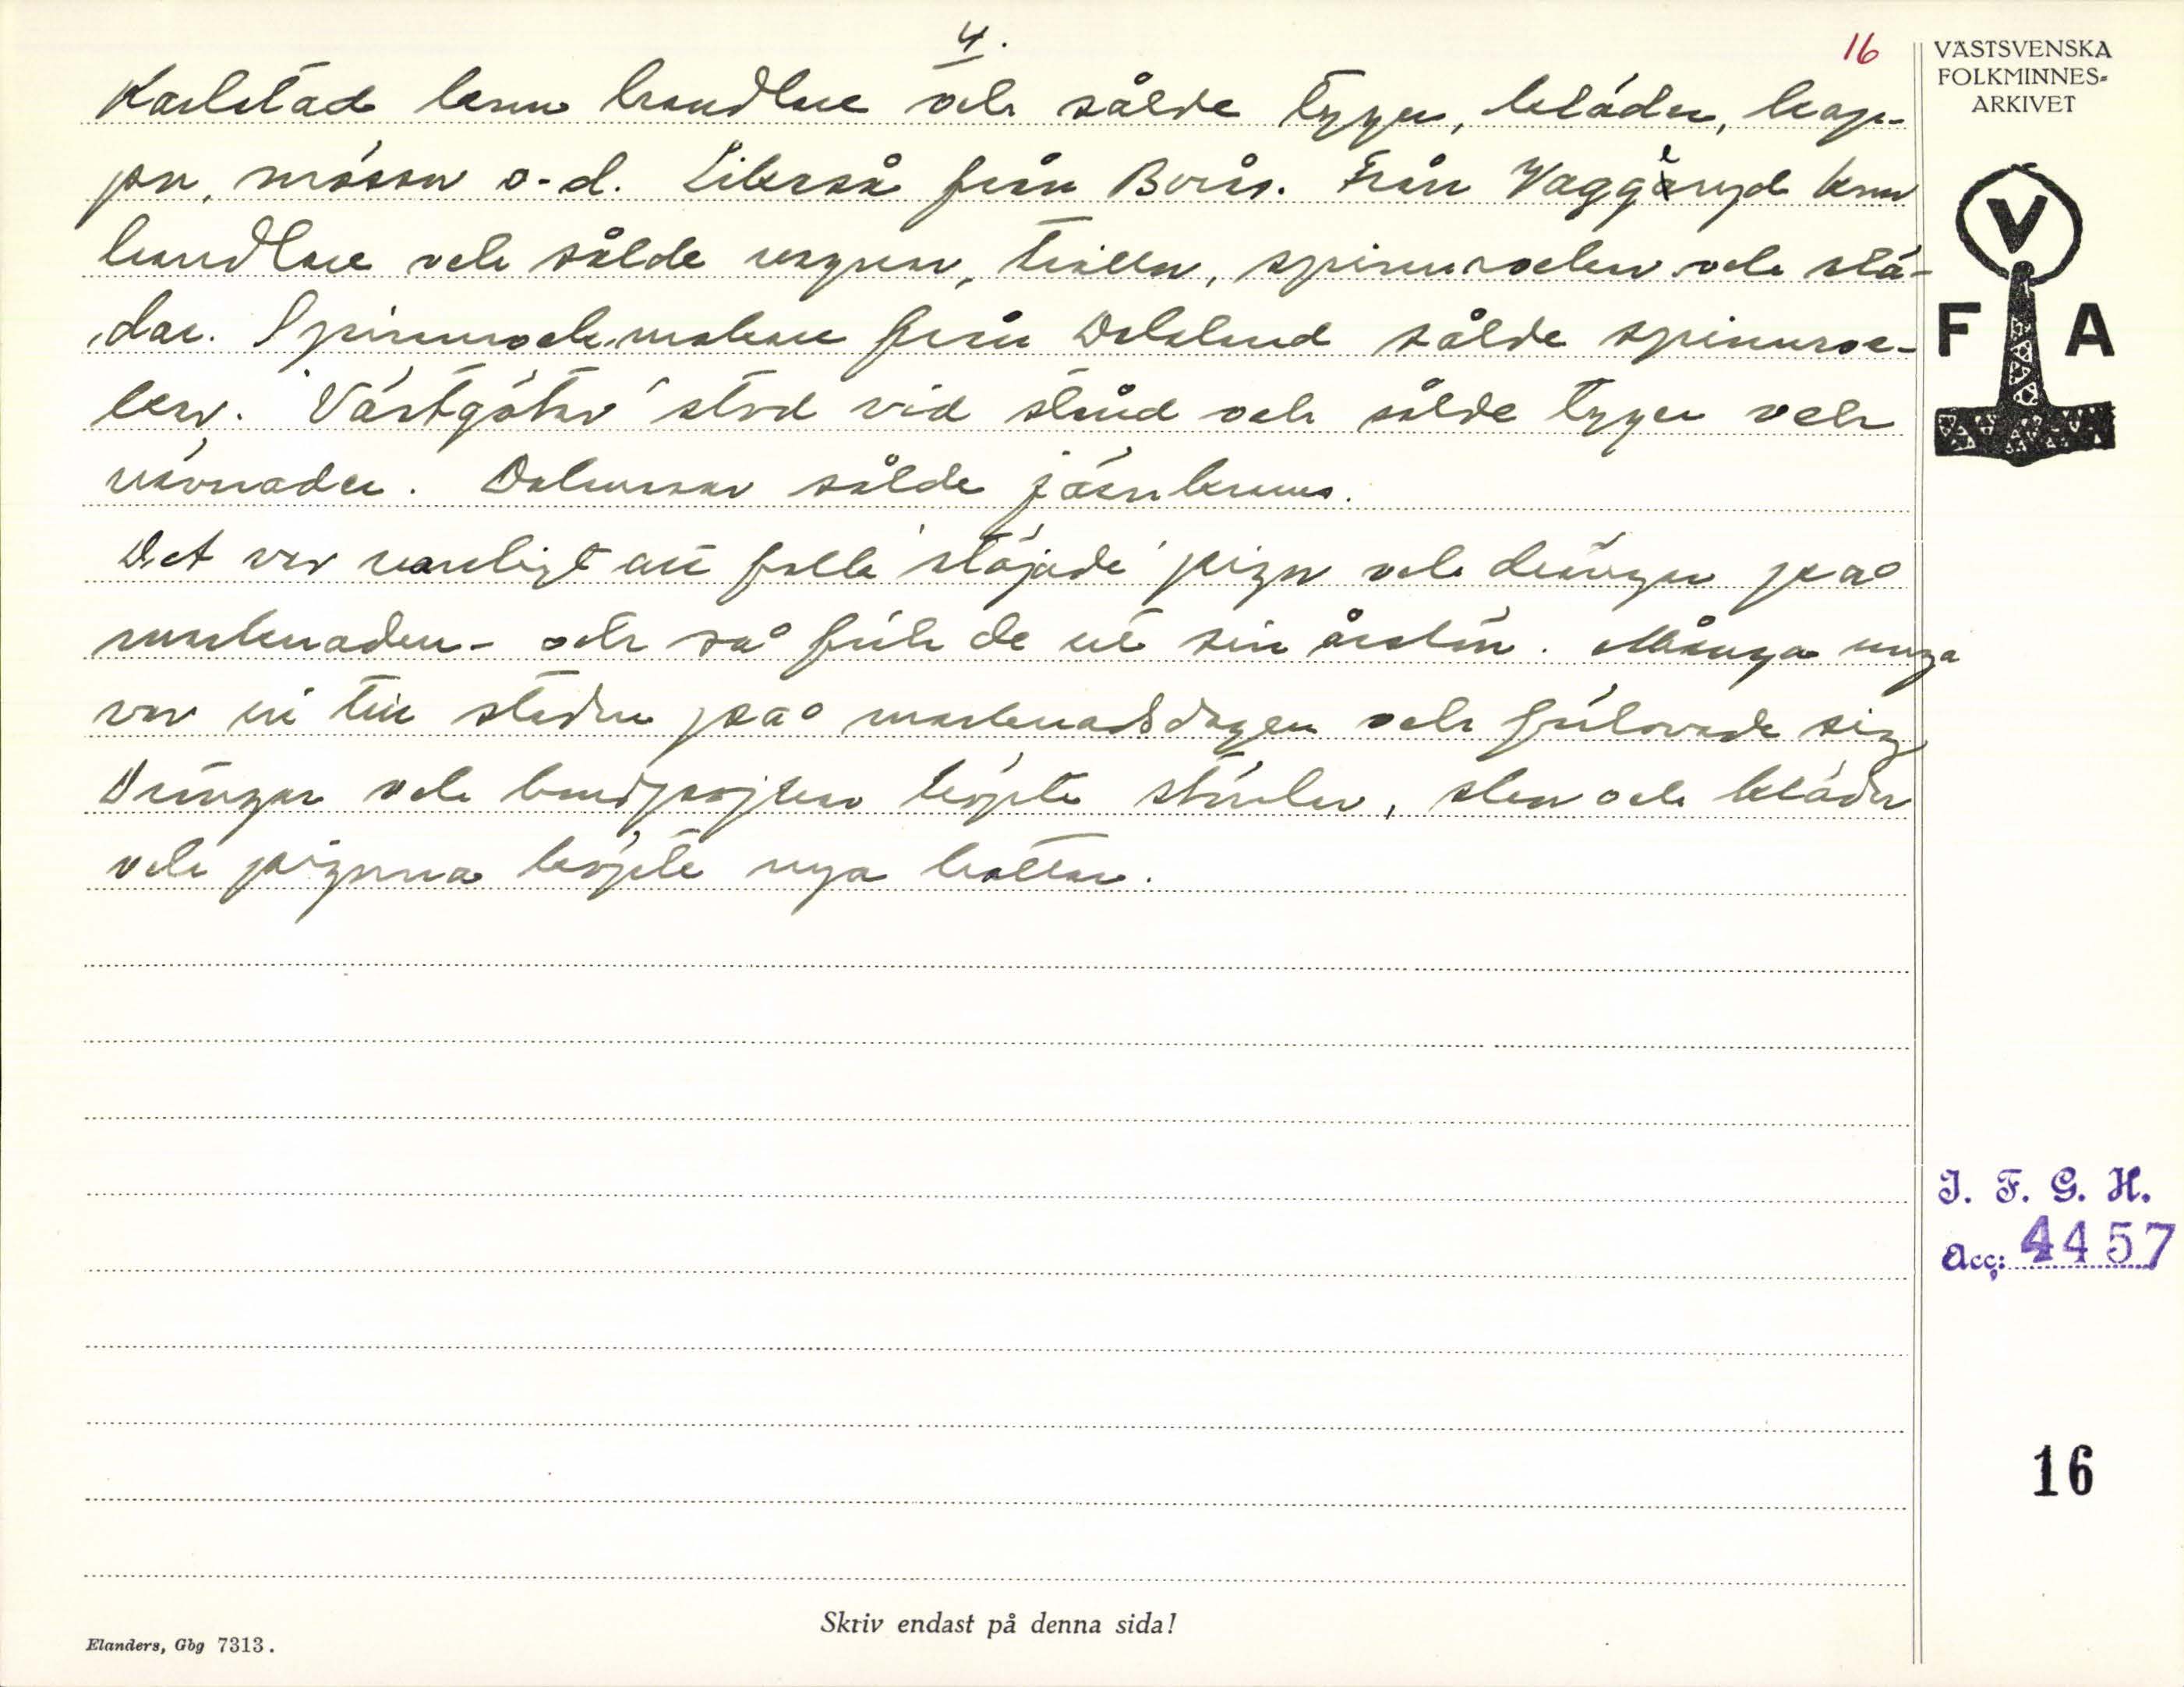 4.
16
VÄSTSVENSKA
FOLKMINNES-
ARKIVET
Karlstad kom handlare och sålde tyger, kläder, kap-
por, mössor o. d. Likaså från Borås. Från Vaggeryd kom
handlare och sålde vagnar, trillor, spinnrockar och slä-
dar. Spinnrockmakare från Dalsland sålde spinnroc-
kar. "Västgötar" stod vid stånd och sålde tyger och
vävnader. Dalmasar sålde järnkram.
Det var vanligt att folk "stöjade" pigor och drängar på
marknaden - och så fick de ut sin årslön. Många unga
var in till staden på marknadsdagen och förlovade sig
Drängar och bondpojkar köpte stövlar, skor och kläder
och pigorna köpte nya hattar.
V
F A
I. F. G. H.
Acc: 4457
16
Skriv endast på denna sida!
Elanders, Gbg 7313.